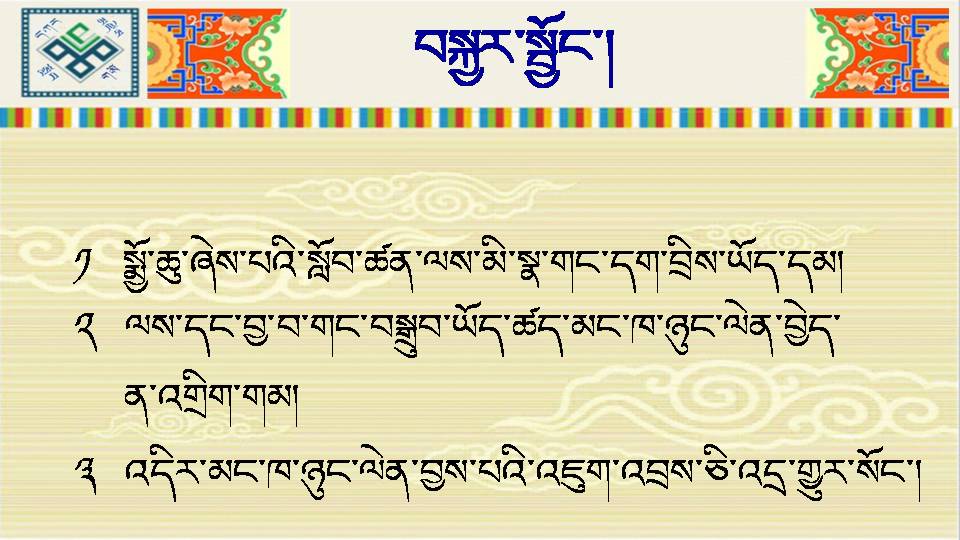 བསྐྱར་སྦྱོང་།
༡ སྨྱོ་ཆུ་ཞེས་པའི་སློབ་ཚན་ལས་མི་སྣ་གང་དག་བྲིས་ཡོད་དམ།
༢ ལས་དང་བྱ་བ་གང་བསྒྲུབ་ཡོད་ཚད་མང་ཁ་ཉུང་ལེན་བྱེད་
ན་འགྲིག་གམ།
༣ འདིར་མང་ཁ་ཉུང་ལེན་བྱས་པའི་འཇུག་འབྲས་ཅི་འདྲ་གྱུར་སོང་།